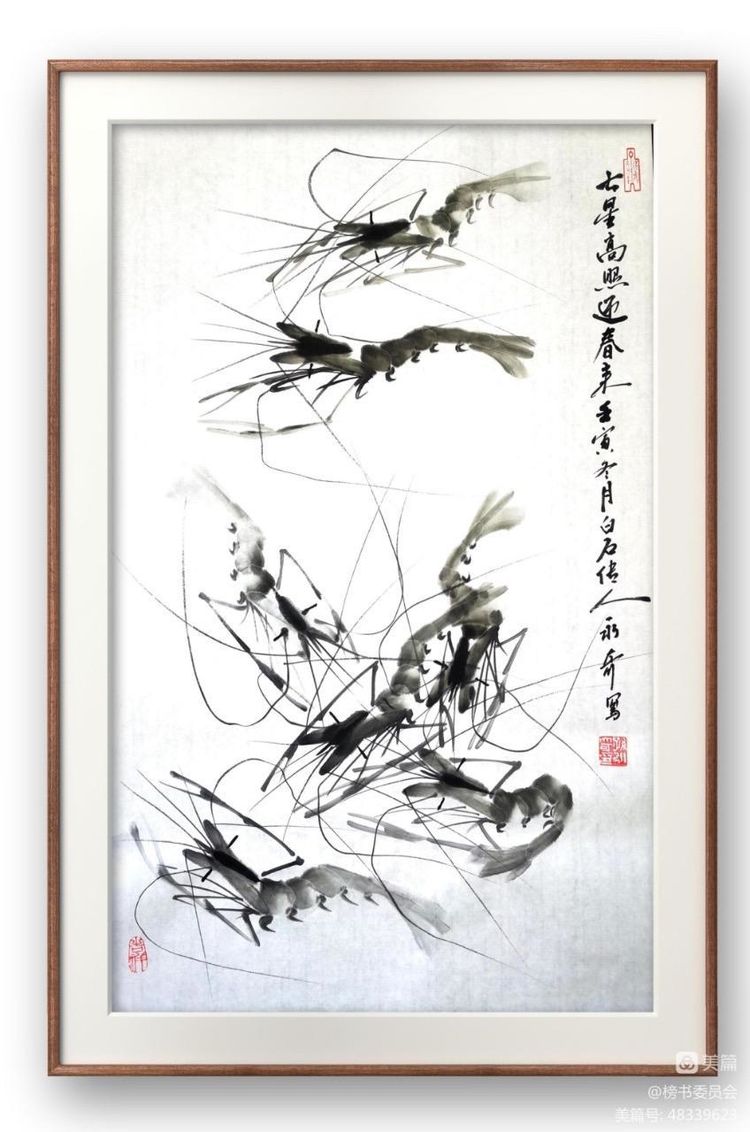 吉星高照迎春来壬寅冬月白石传人永写
美篇
@榜书委员会
美篇号: 48339623